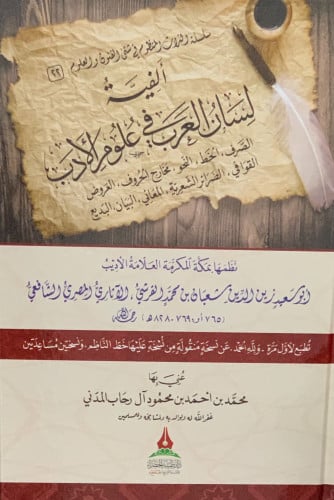 سلسلة التراث المنظوم في شتى الفنون والعلوم
٢٢
ألفية
لسان العرب في علوم الأدب
الصرف، الخط، النحو، مخارج الحروف، العروض
القوافي، الضرائر الشعرية، المعاني، البيان، البديع
نظمها بمكة المكرمة العلامة الأديب
أبو سعيد زين الدين شعبان بن محمد القرشي، الآثاري المصري الشافعي
(٧٦٥ أو ٧٦٩ـ٨٢٨هـ) رحمه الله
تطبع لأول مرة ـ ولله الحمد ـ عن نسخة منقولة من نسخة عليها خط الناظم، ونسختين مساعدتين
عني بها
محمد بن أحمد بن محمود آل رحاب المدني
غفر الله له ولوالديه ومشايخه وللمسلمين